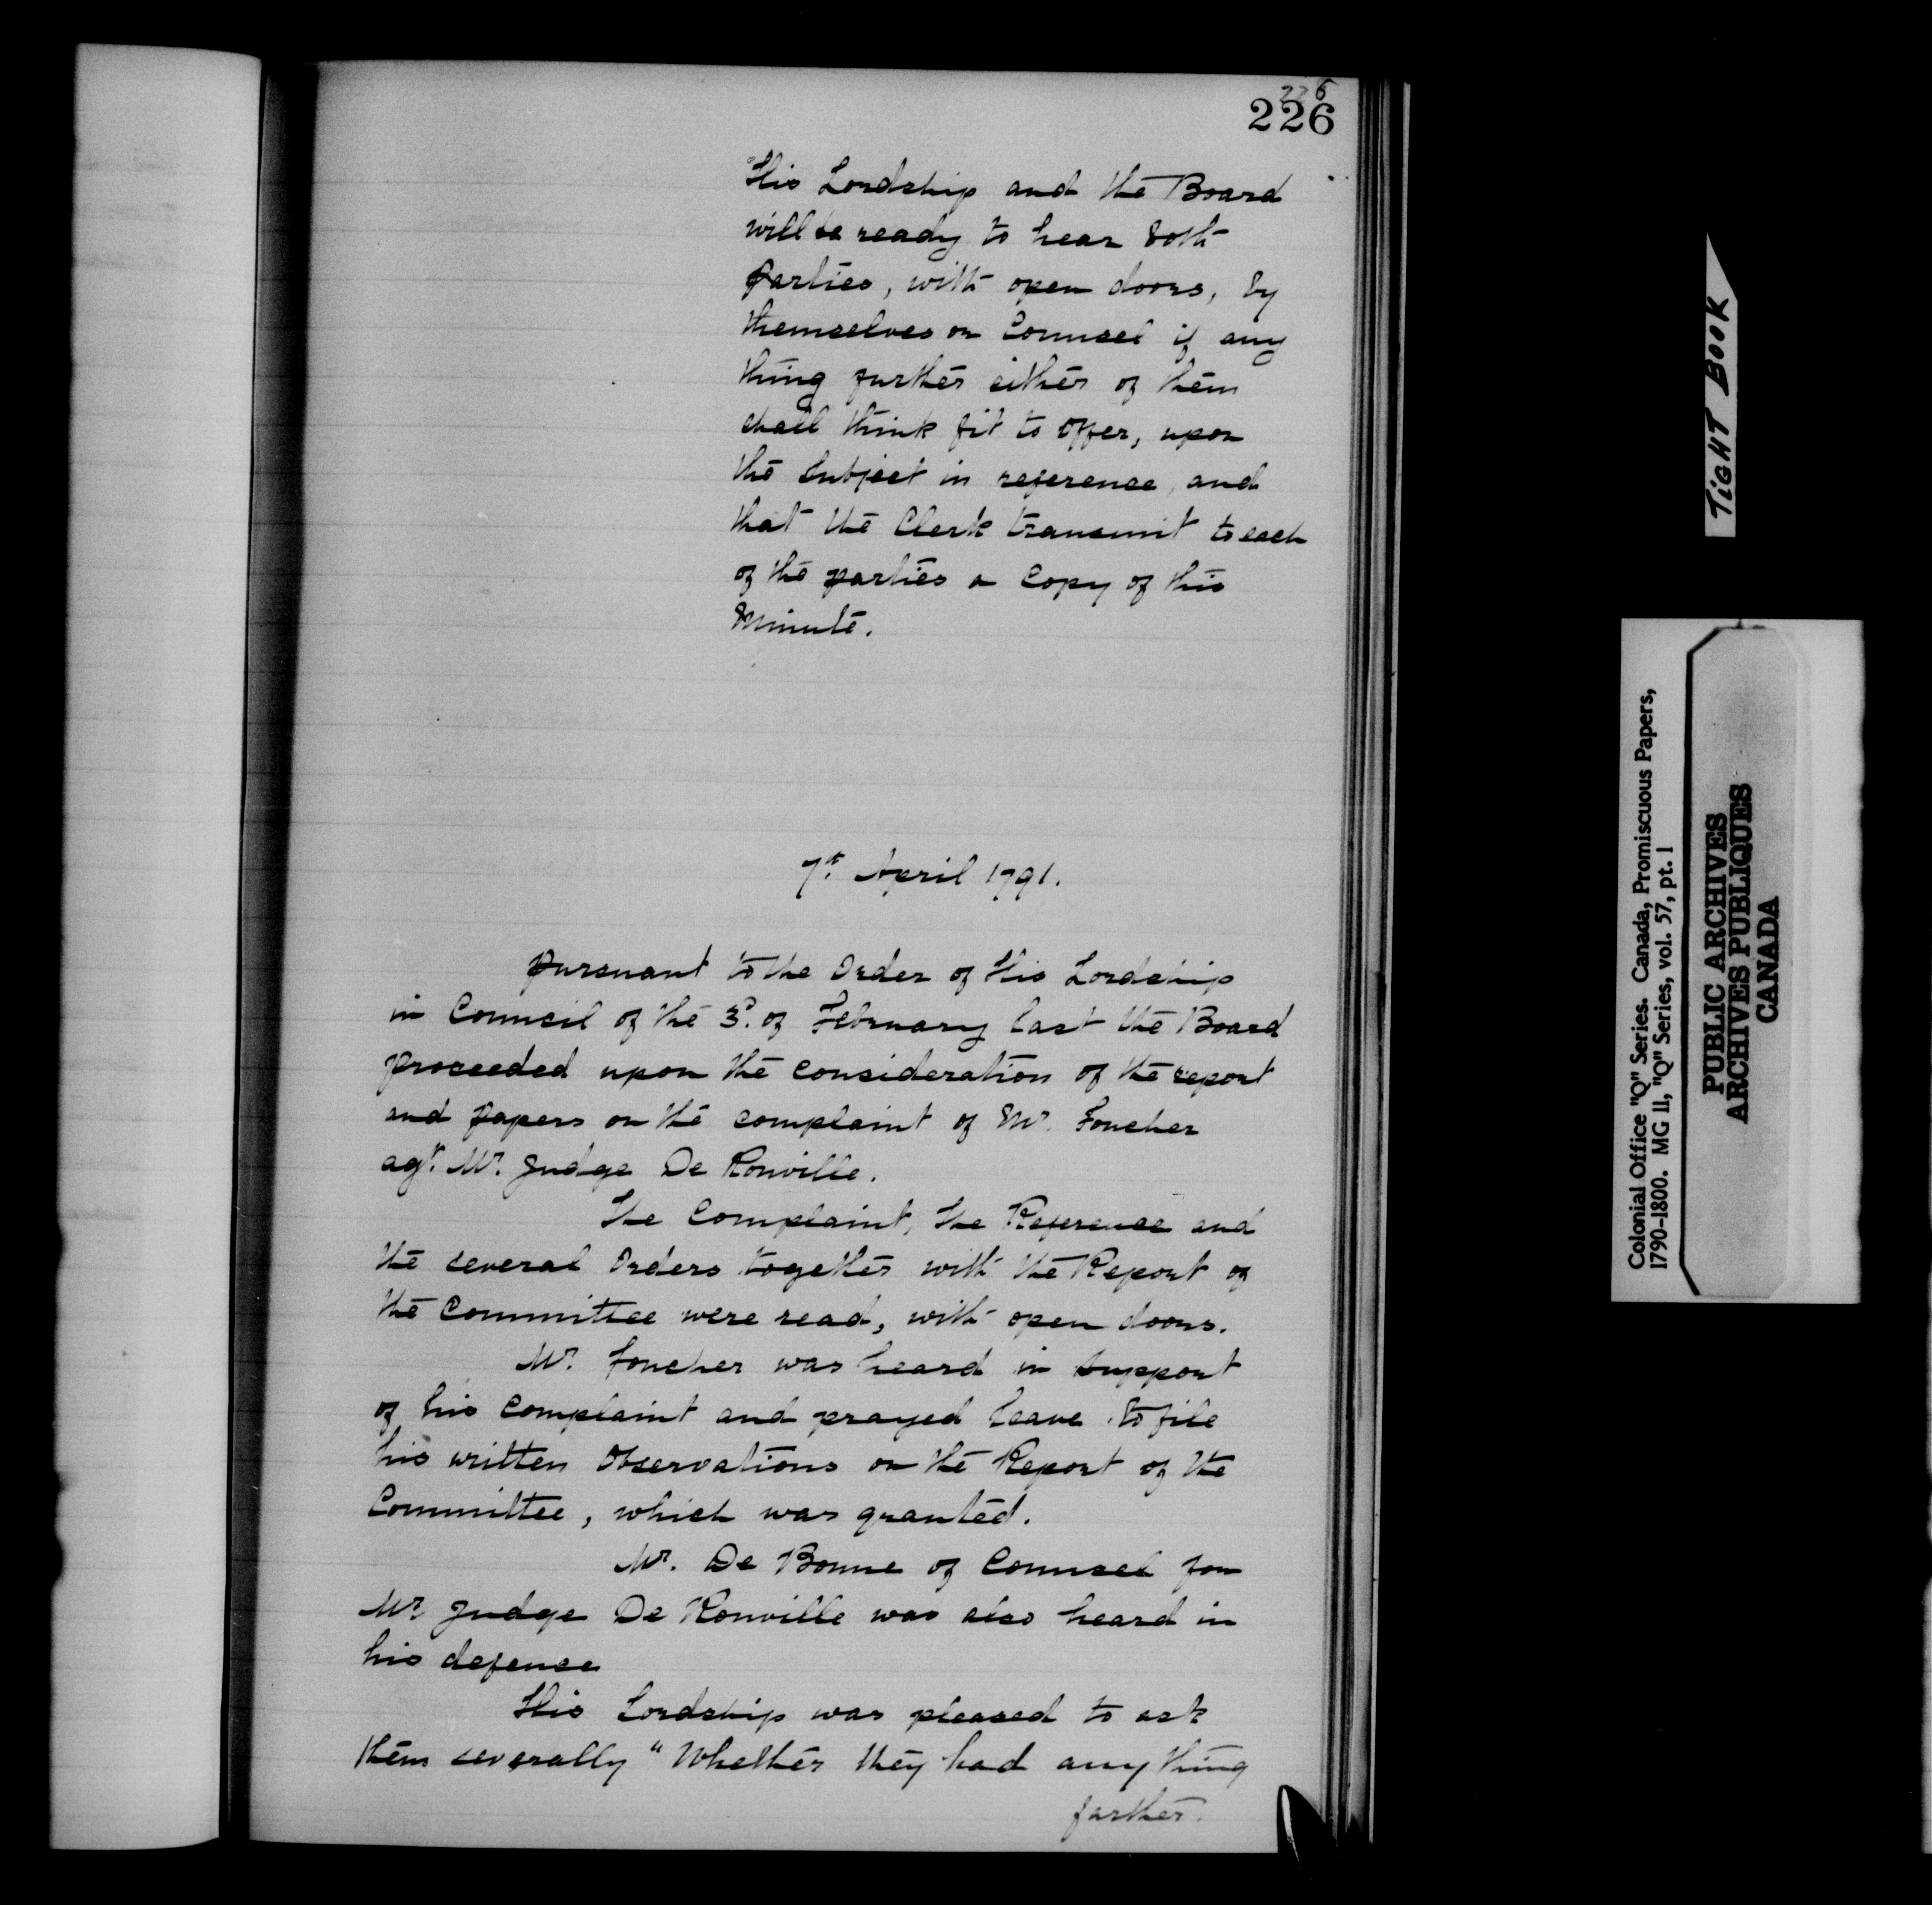 226
226
"His Lordship and the Board
will be ready to hear both
parties, with open doors, by
themselves or Counsel if any
thing further either of them
shall think fit to offer, upon
the Subject in reference, and
that the Clerk transmit to each
of the parties a Copy of this
Minute.
7th April 1791.
Pursuant to the Order of His Lordship
in Council of the 3d. of February last the Board
proceeded upon the consideration of the report
and papers on the complaint of Mr. Foucher
agt. Mr. Judge De Rouville.
The Complaint, the Reference and
the several Orders together with the Report of
the Committee were read, with open doors.
Mr. Foucher was heard in support
of his complaint and prayed leave to file
his written Observations on the Report of the
Committee, which was granted.
Mr. De Bonne of Counsel for
Mr Judge De Rouville was also heard in
his defence
His Lordship was pleased to ask
them severally "Whether they had any thing
farther.
TIGHT BOOK
Colonial Office "Q" Series. Canada, Promiscuous Papers,
1790-1800. MG 11, "Q" Series, vol. 57, pt. 1
PUBLIC ARCHIVES
ARCHIVES PUBLIQUES
CANADA